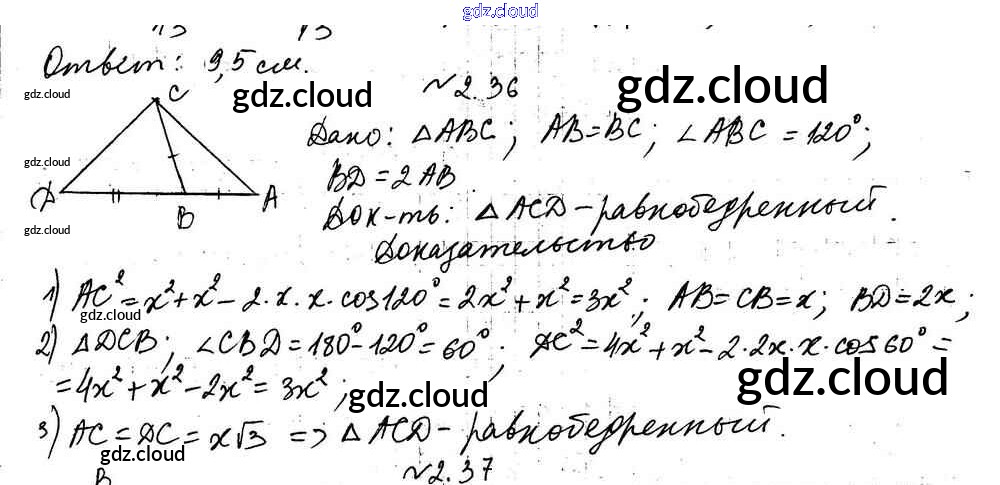 gdz.cloud
Ответ: 9,5 см.
N 2.36
gdz.cloud
gdz.cloud
gdz.cloud
C
Дано: △ABC; AB=BC; ∠ABC = 120°;
gdz.cloud
BD = 2AB
D B A
Док-ть: △ACD - равнобедренный.
gdz.cloud
Доказательство
1) AC² = x² + x² - 2·x·x·cos120° = 2x² + x² = 3x²; AB=CB=x; BD=2x;
gdz.cloud
2) △DCB; ∠CBD = 180° - 120° = 60°. DC² = 4x² + x² - 2·2x·x·cos60° =
= 4x² + x² - 2x² = 3x²;
gdz.cloud
gdz.cloud
3) AC = DC = x√3 => △ACD - равнобедренный.
gdz.cloud
N 2.37
B